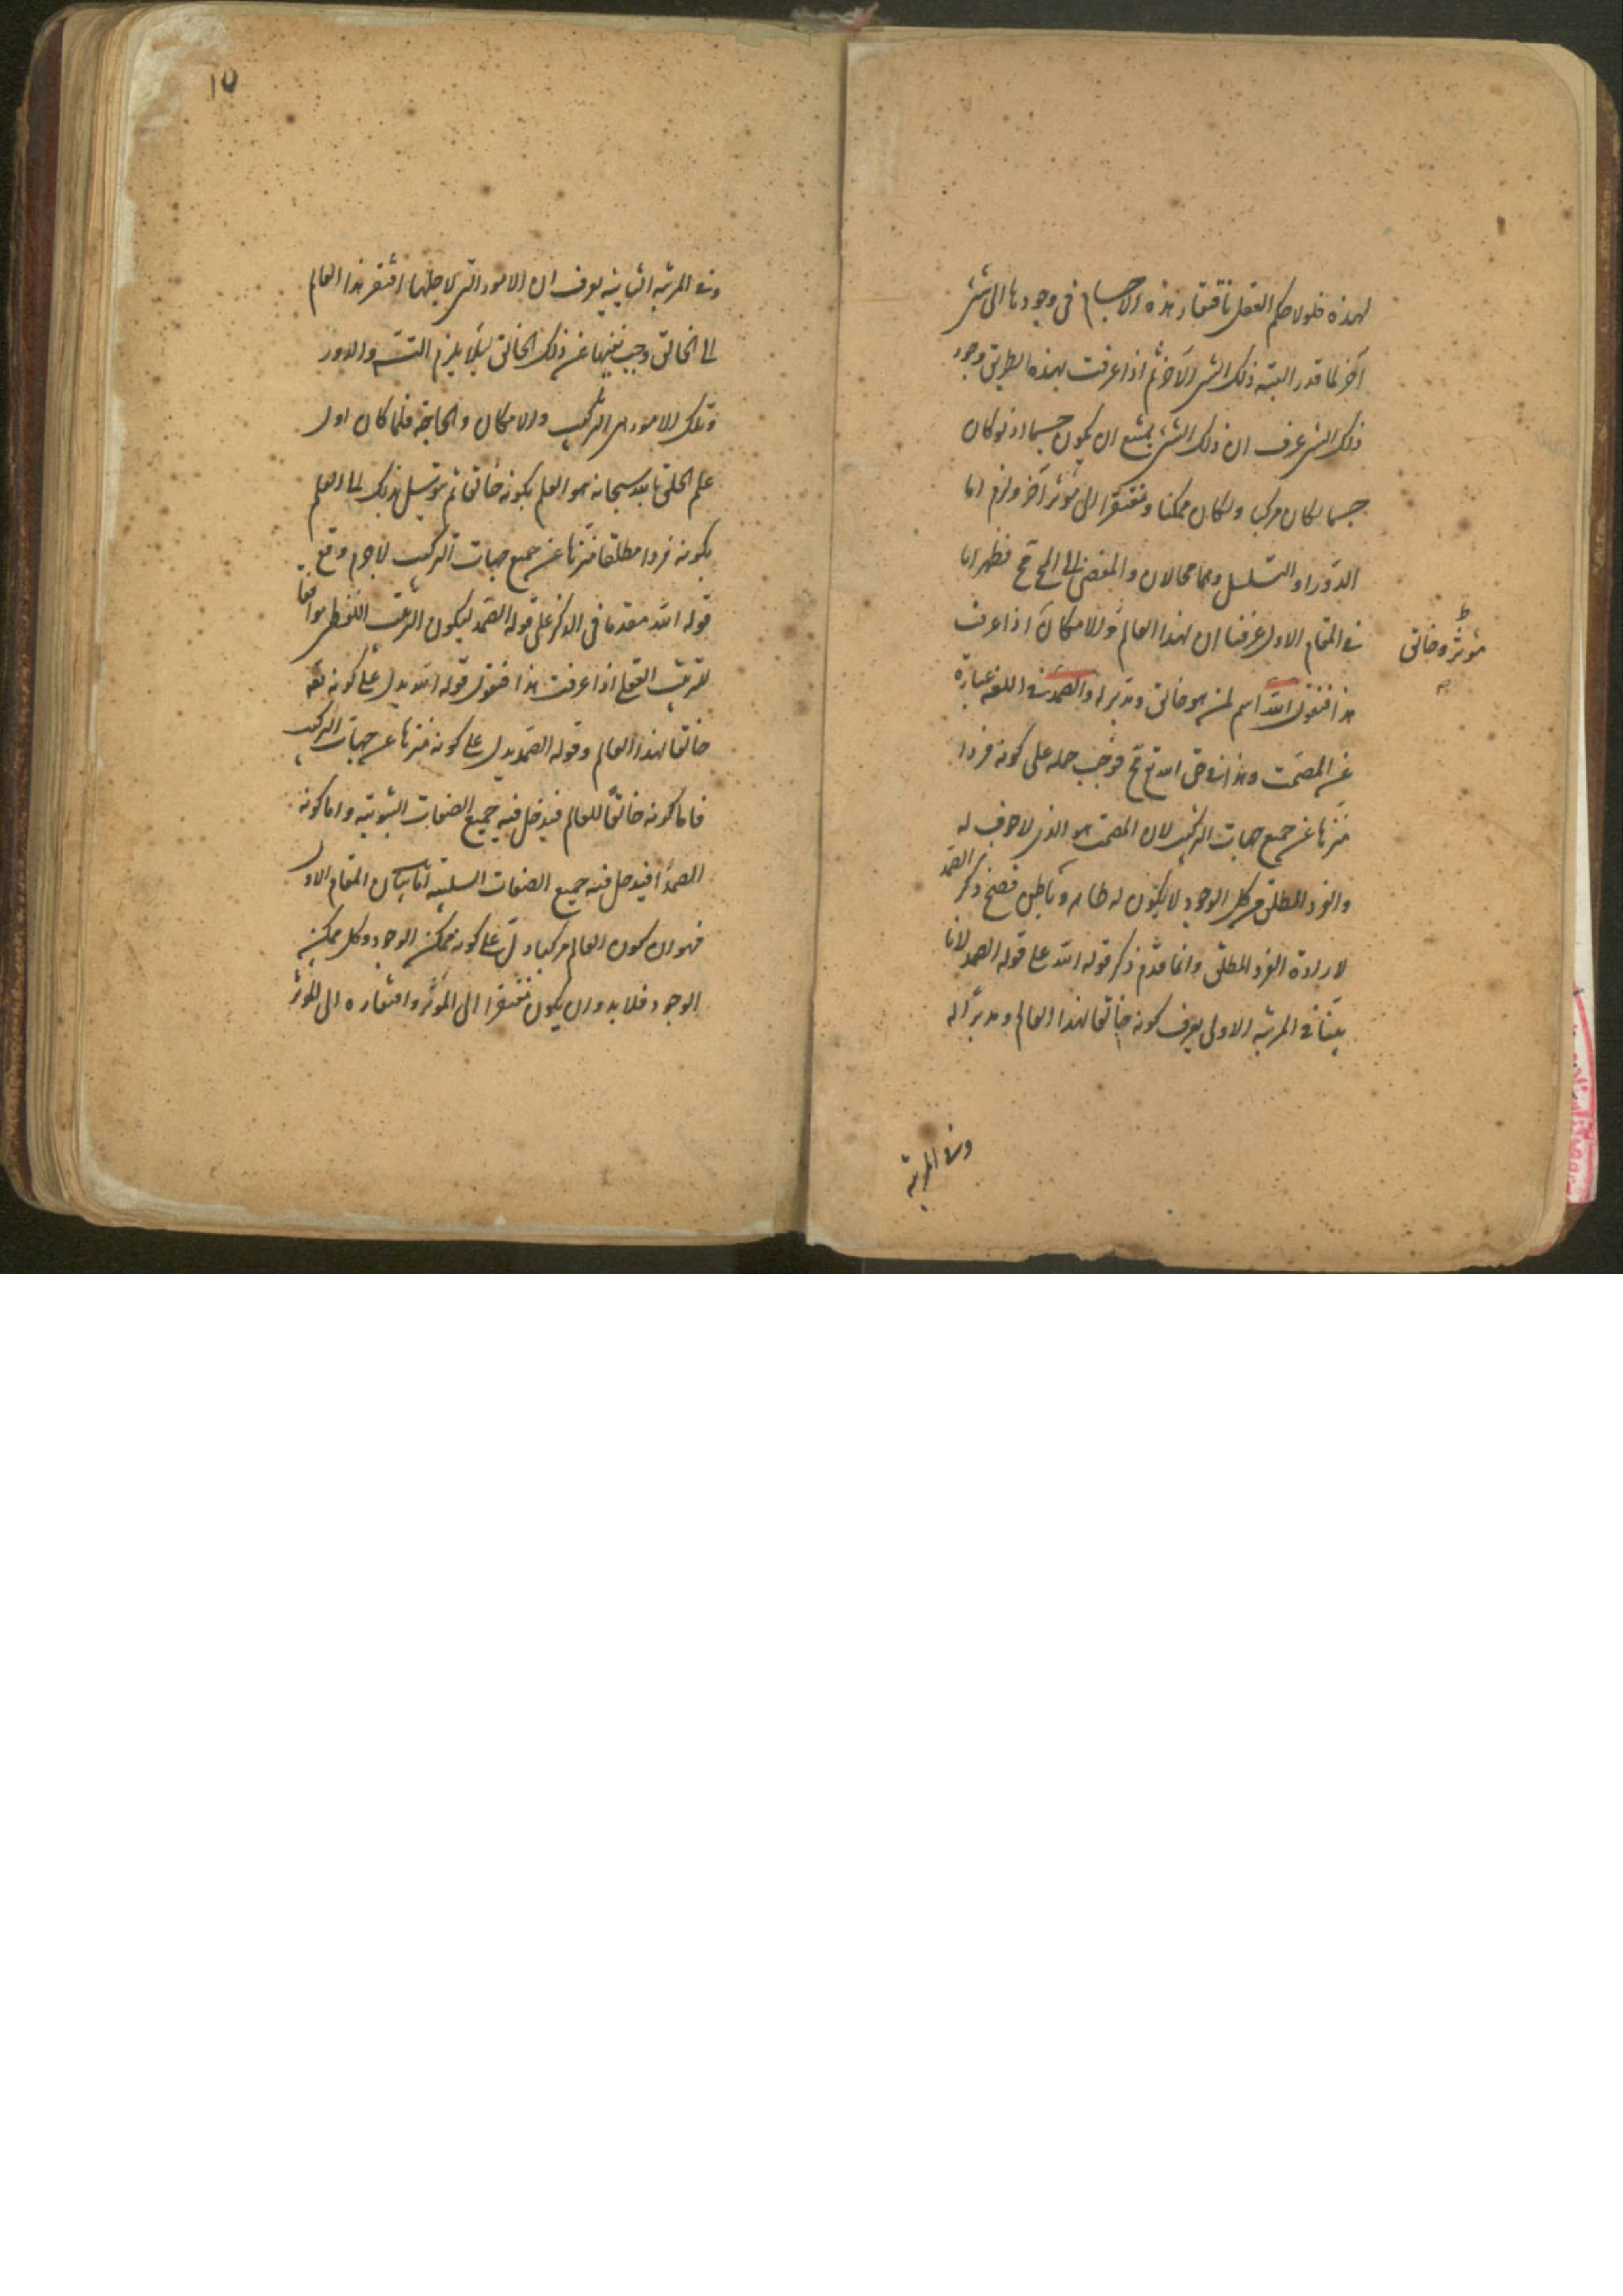 لهذه فلولا حكم العقل بافتقار هذه الاجسام فى وجودها الى شئ
آخر لما قدر البتة ذلك الشئ الآخر ثم اذا عرفت بهذه الطريق وجود
ذلك الشئ عرف ان ذلك الشئ يمتنع ان يكون جسما اذ لو كان
جسما لكان مركبا ولكان ممكنا ومفتقرا الى مؤثر آخر ولزم اما
الدور او التسلسل وهما محالان والمفضى الى المح مح فظهر انا
فى المقام الاول عرفنا ان لهذا العالم والامكان اذا عرفت
مؤثر وخالق
هذا فنقول الله اسم لمن هو خالق ومدبر له والصمد فى اللغة عبارة
عن المصمت وهذا فى حق الله تع مح فوجب حمله على كونه فردا
منزها عن جميع جهات التركيب لان المصمت هو الذى لا جوف له
والفرد المطلق من كل الوجوه لا يكون له ظاهر وباطن فصح ذكر الصمد
لارادة الفرد المطلق وانما قدم ذكر قوله الله على قوله الصمد لانا
بينا فى المرتبة الاولى يعرف كونه خالقا لهذا العالم ومدبرا له
وفى المرتبة
١٥
وفى المرتبة الثانية يعرف ان الامور التى لاجلها افتقر هذا العالم
الى الخالق وجب نفيها عن ذلك الخالق لئلا يلزم التسه والدور
وتلك الامور هى التركيب والامكان والحاجة فلما كان اول
علم الخلق بالله سبحانه هو العلم بكونه خالقا ثم يتوسل بذلك الى العلم
بكونه فردا مطلقا منزها عن جميع جهات التركيب لا جرم وقع
قوله الله مقدما فى الذكر على قوله الصمد ليكون الترتيب اللفظى موافقا
للترتيب العقلى اذا عرفت هذا فنقول قوله الله يدل على كونه تعه
خالقا لهذا العالم وقوله الصمد يدل على كونه منزها عن جهات التركيب
فاما كونه خالقا للعالم فيدخل فيه جميع الصفات الثبوتية واما كونه
الصمد افيدخل فيه جميع الصفات السلبية اما بيان المقام الاول
فهو ان كون العالم مركبا دل على كونه ممكن الوجود وكل ممكن
الوجود فلا بد وان يكون مفتقرا الى المؤثر وافتقاره الى المؤثر